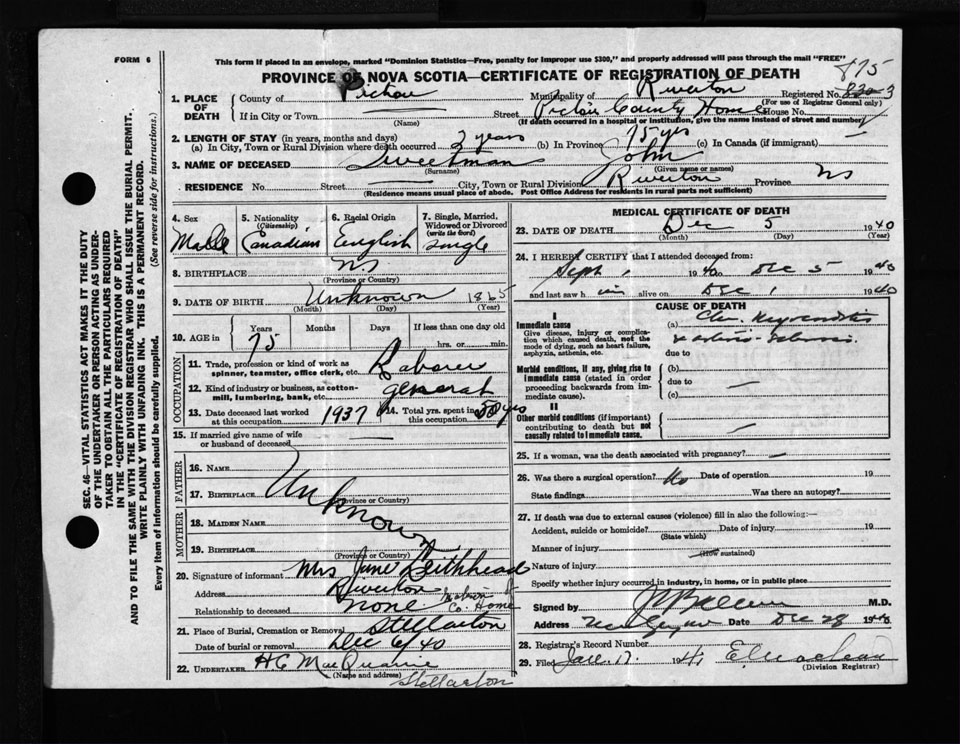 FORM 6
This form if placed in an envelope, marked "Dominion Statistics—Free, penalty for improper use $300," and properly addressed will pass through the mail "FREE"
PROVINCE OF NOVA SCOTIA—CERTIFICATE OF REGISTRATION OF DEATH
875
1. PLACE OF DEATH
County of Pictou Municipality of Riverton Registered No.
(For use of Registrar General only)
If in City or Town (Name) Street Pictou County Home House No.
(If death occurred in a hospital or institution, give the name instead of street and number)
2. LENGTH OF STAY (in years, months and days)
(a) In City, Town or Rural Division where death occurred 3 years (b) In Province 75 yrs (c) In Canada (if immigrant)
3. NAME OF DECEASED Sweetman John
(Surname) (Given name or names)
RESIDENCE No. Street City, Town or Rural Division Riverton Province NS
(Residence means usual place of abode. Post Office Address for residents in rural parts not sufficient)
4. Sex Male
5. Nationality (Citizenship) Canadian
6. Racial Origin English
7. Single, Married, Widowed or Divorced (write the word) Single
8. BIRTHPLACE NS
(Province or Country)
9. DATE OF BIRTH Unknown 1865
(Month) (Day) (Year)
10. AGE in Years 75 Months Days If less than one day old hrs. or min.
OCCUPATION
11. Trade, profession or kind of work as spinner, teamster, office clerk, etc. Laborer
12. Kind of industry or business, as cotton-mill, lumbering, bank, etc. general
13. Date deceased last worked at this occupation 1937
14. Total yrs. spent in this occupation 50 yrs
15. If married give name of wife or husband of deceased
FATHER
16. NAME
17. BIRTHPLACE Unknown
(Province or Country)
MOTHER
18. MAIDEN NAME
19. BIRTHPLACE
(Province or Country)
20. Signature of informant Mrs Jane Leithhead
Address Riverton
Relationship to deceased none Matron Co. Home
21. Place of Burial, Cremation or Removal Stellarton
Date of burial or removal Dec 6/40
22. UNDERTAKER H C MacQuarrie
(Name and address) Stellarton
MEDICAL CERTIFICATE OF DEATH
23. DATE OF DEATH Dec 5 1940
(Month) (Day) (Year)
24. I HEREBY CERTIFY that I attended deceased from:
Sept 1 1940 to Dec 5 1940
and last saw him alive on Dec 1 1940
CAUSE OF DEATH
I
Immediate cause
Give disease, injury or complication which caused death, not the mode of dying, such as heart failure, asphyxia, asthenia, etc.
(a) Chr. Myocarditis
& arterio-sclerosis
due to
Morbid conditions, if any, giving rise to immediate cause (stated in order proceeding backwards from immediate cause).
(b)
due to
(c)
II
Other morbid conditions (if important) contributing to death but not causally related to immediate cause.
25. If a woman, was the death associated with pregnancy?
26. Was there a surgical operation? No Date of operation 19
State findings Was there an autopsy?
27. If death was due to external causes (violence) fill in also the following:—
Accident, suicide or homicide? Date of injury 19
(State which)
Manner of injury
(How sustained)
Nature of injury
Specify whether injury occurred in industry, in home, or in public place
Signed by M.D.
Address Date Dec 28 1940
28. Registrar's Record Number
29. Filed Jan. 17. 1941
(Division Registrar)
SEC. 46—VITAL STATISTICS ACT MAKES IT THE DUTY
OF THE UNDERTAKER OR PERSON ACTING AS UNDER-
TAKER TO OBTAIN ALL THE PARTICULARS REQUIRED
IN THE "CERTIFICATE OF REGISTRATION OF DEATH"
AND TO FILE THE SAME WITH THE DIVISION REGISTRAR WHO SHALL ISSUE THE BURIAL PERMIT.
WRITE PLAINLY WITH UNFADING INK. THIS IS A PERMANENT RECORD.
Every item of information should be carefully supplied. (See reverse side for instructions.)